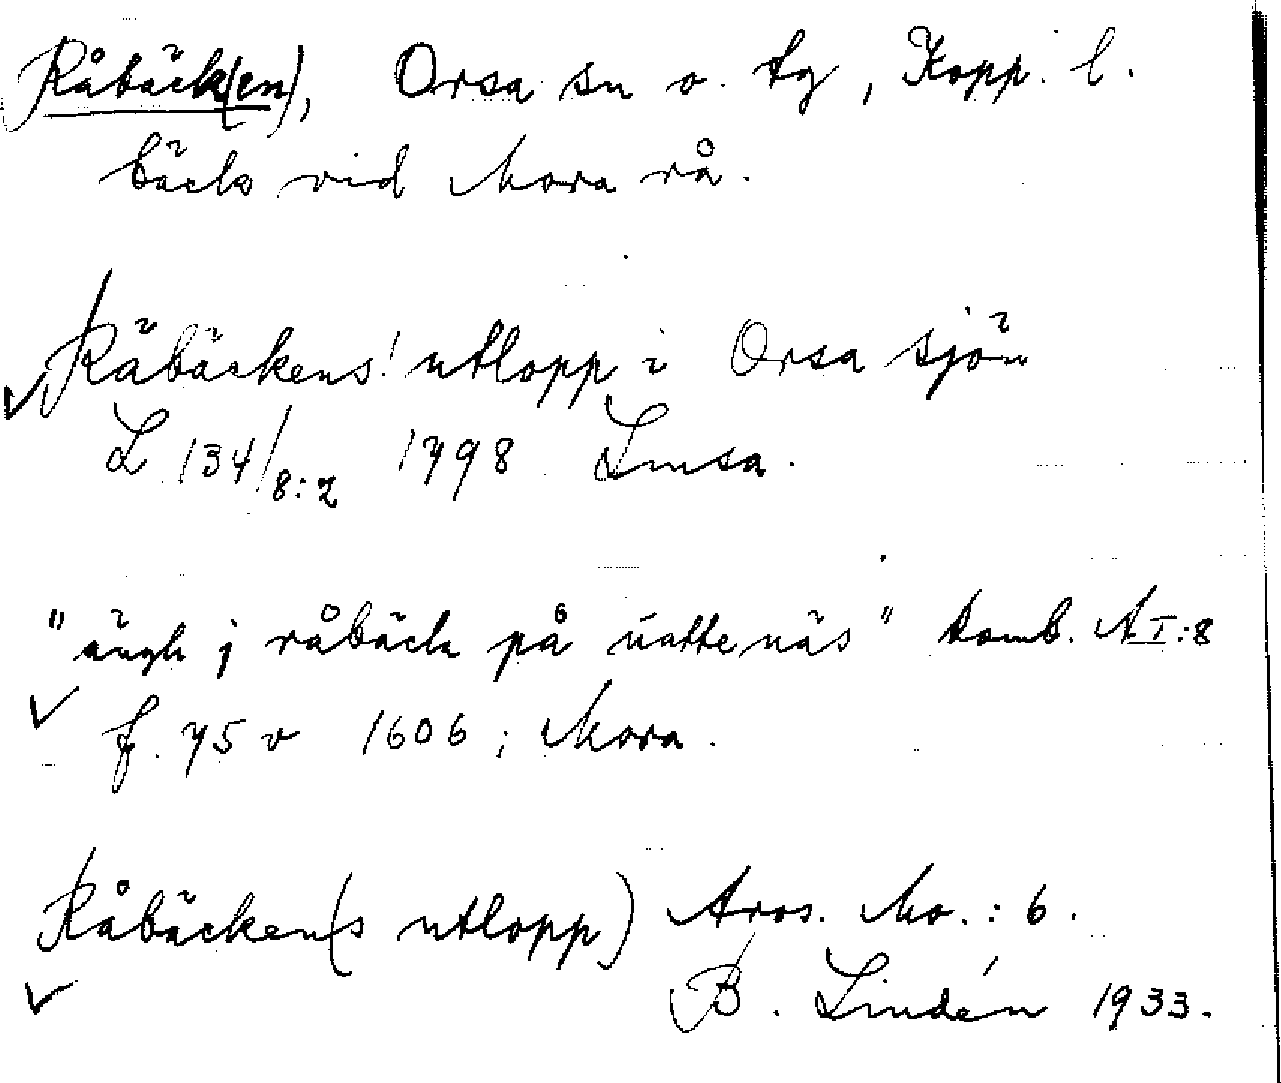 Råbäck(en), Orsa sn o. tg, Kopp. l.
bäck vid Mora rå.
Räbäckens! utlopp i Orsa sjön
L 134/8:2 1798 Lmsa.
"ängh j råbäck på uattenäs" Domb. A I:8
f. 75 v 1606; Mora.
Råbäcken(s utlopp) Aros. Mo.: 6.
B. Lindén 1933.